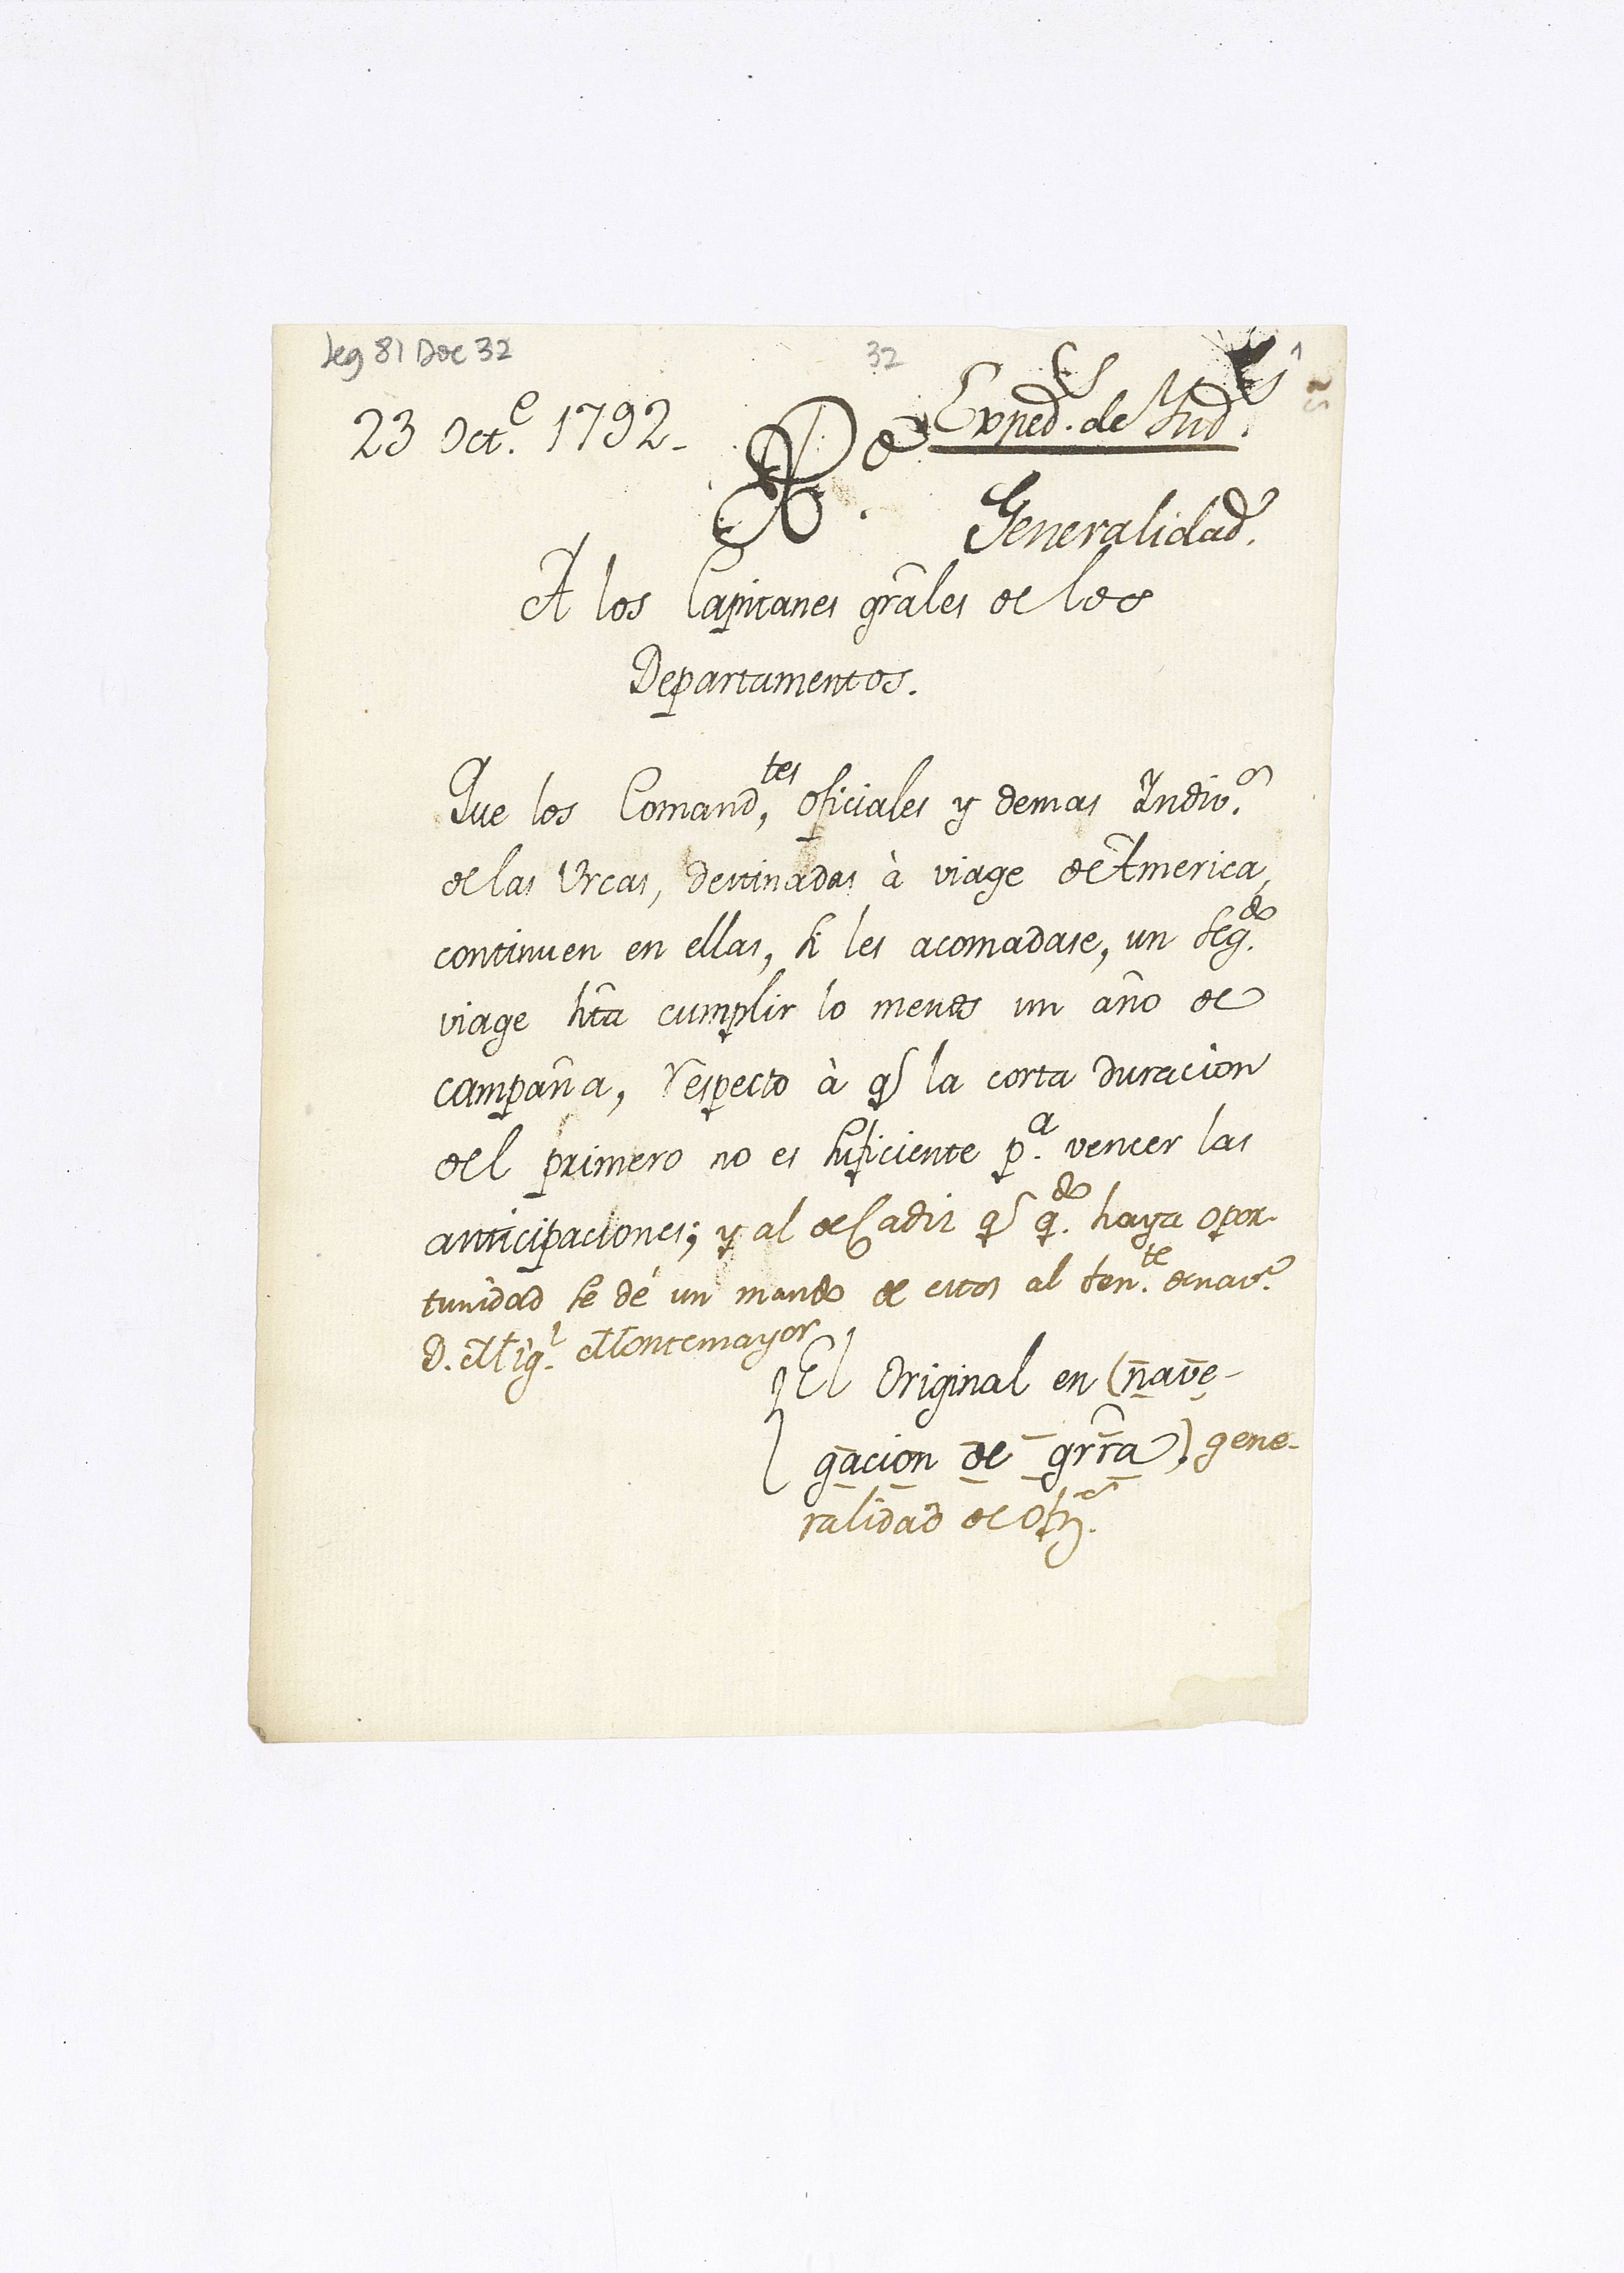 Leg 81 Doc 32
32
1
25
23 Oct.e 1792-
Exped.s de Ynd.s
Generalidad.
A los Capitanes grâles de los
Departamentos.
Que los Comand,tes oficiales y demas Yndiv.s
de las Urcas, destinadas à viage de America,
continuen en ellas, si les acomadase, un seg.do
viage hta cumplir lo menos un año de
campaña, respecto à q la corta duracion
del primero no es suficiente p.a vencer las
anticipaciones; y al de Cadiz q q.do haya opor-
tunidad se dé un mando de estos al ten.te de nav.o
D. Mig.l Montemayor
El Original en (nave-
gacion de grra) gene-
ralidad de Of.s